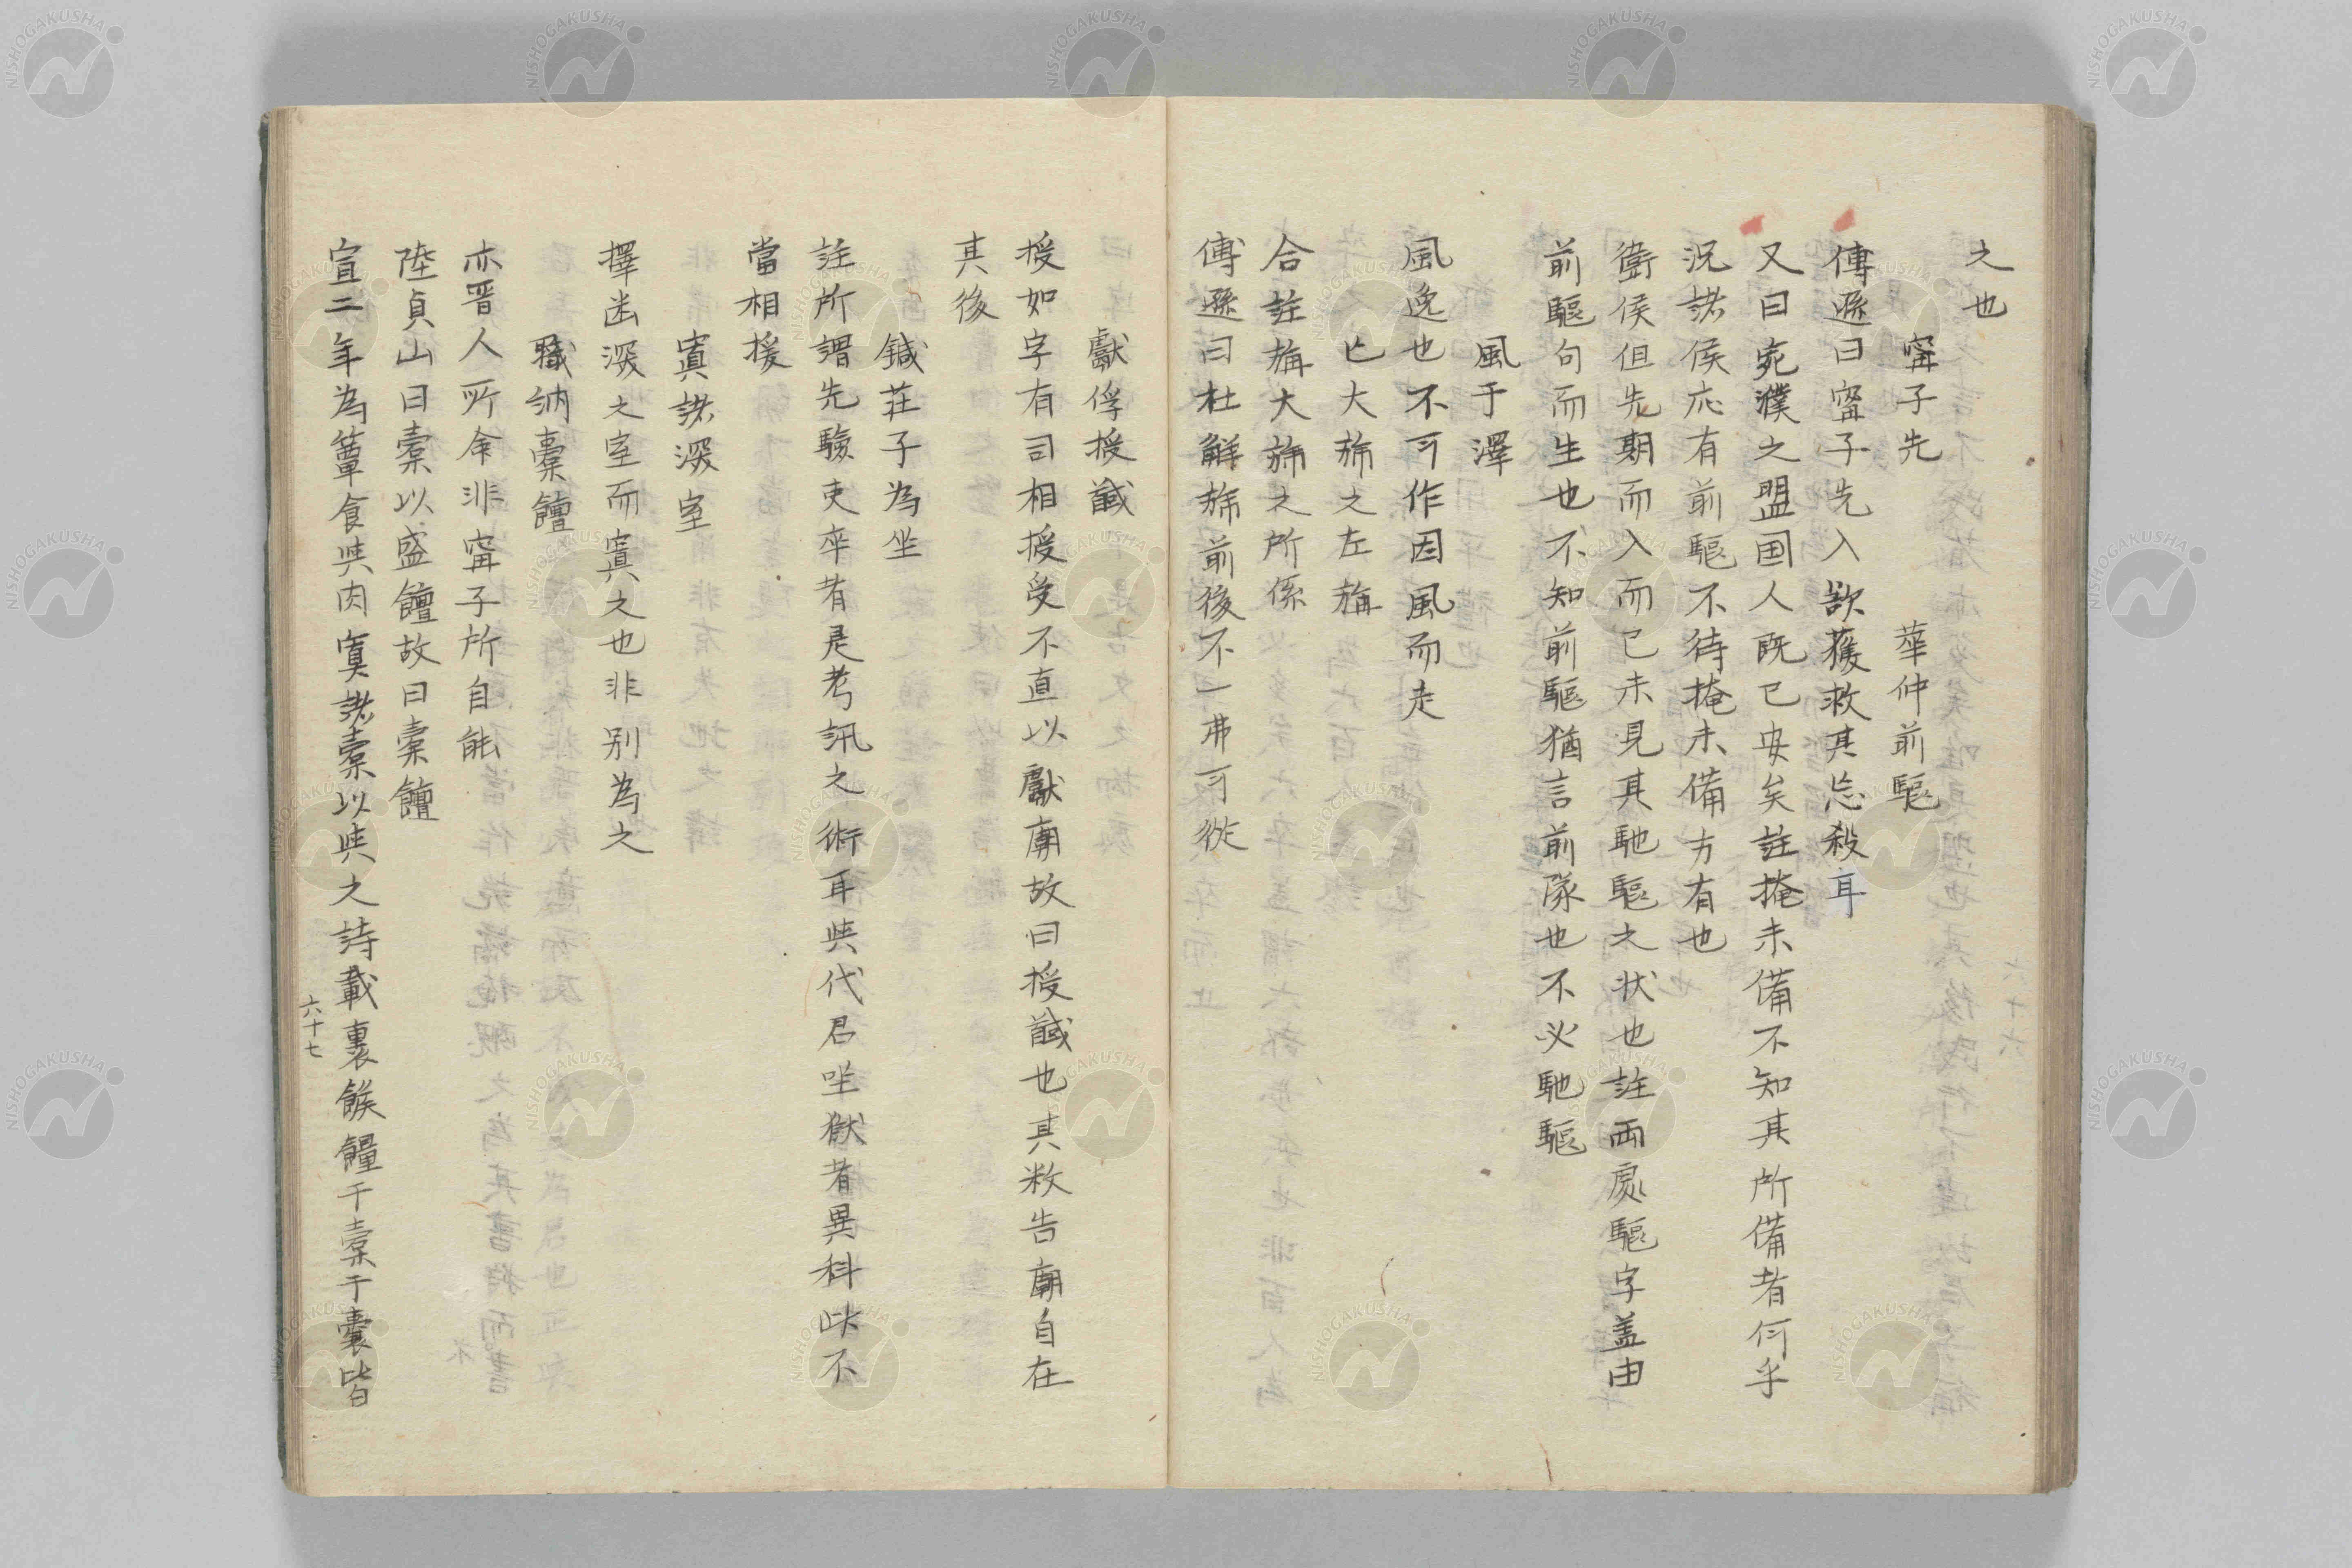 之也
甯子先　華仲前驅
傅遜曰甯子先入欲獲救其忿殺耳
又曰宛濮之盟国人既已安矣註掩未備不知其所備者何乎
況諸侯応有前驅不待掩未備方有也
衛侯但先期而入而已未見其馳驅之状也註両処驅字盖由
前驅句而生也不知前驅猶言前隊也不必馳驅
風于澤
風逸也不可作因風而走
亡大旆之左旃
合註旃大旆之所係
傅遜曰杜解旆前後不一弗可從
獻俘授馘
授如字有司相授受不直以獻廟故曰授馘也其数告廟自在
其後
鍼荘子為坐
註所謂先驗吏卒者是考訊之術耳與代君坐獄者異科此不
當相援
寘諸深室
擇幽深之室而寘之也非別為之
職納橐饘
亦晋人所命非甯子所自能
陸貞山曰橐以盛饘故曰橐饘
宣二年為簞食與肉寘諸橐以與之詩載裹餱糧于橐于囊皆
六十七
NISHOGAKUSHA